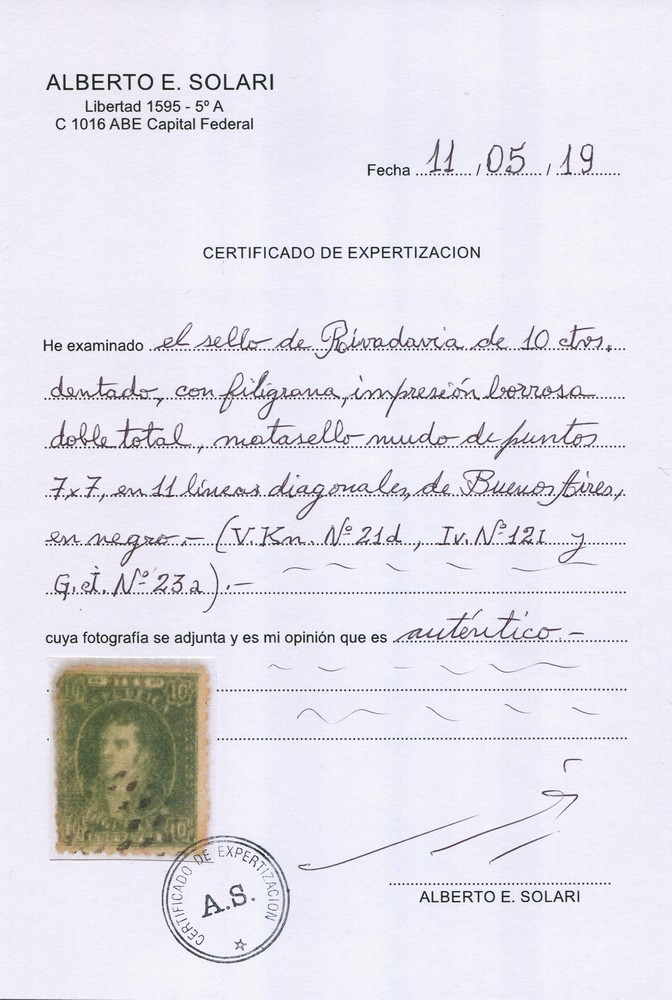 ALBERTO E. SOLARI
Libertad 1595 - 5º A
C 1016 ABE Capital Federal
Fecha 11 / 05 / 19
CERTIFICADO DE EXPERTIZACION
He examinado el sello de Rivadavia de 10 ctvs.
dentado, con filigrana, impresión borrosa
doble total, matasello mudo de puntos
7x7, en 11 líneas diagonales, de Buenos Aires,
en negro.- (V.Kn. Nº 21d, Iv. Nº 12I y
G.J. Nº 23a).-
cuya fotografía se adjunta y es mi opinión que es auténtico.-
10 10
10 10
CERTIFICADO DE EXPERTIZACION
A.S.
ALBERTO E. SOLARI